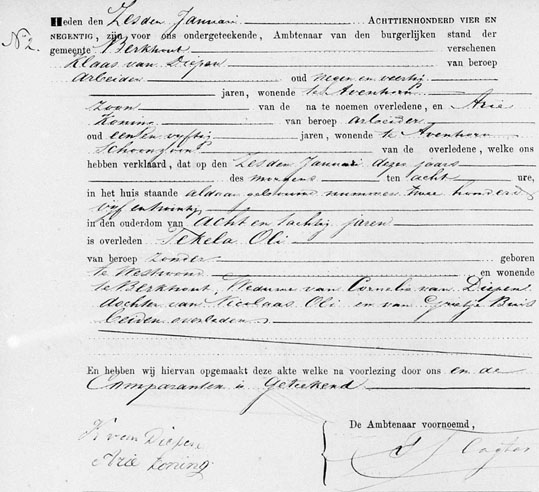 Nº 2.
Heden den Zesden Januari ACHTTIENHONDERD VIER EN
NEGENTIG, zijn voor ons ondergeteekende, Ambtenaar van den burgerlijken stand der
gemeente Berkhout verschenen
Klaas van Diepen van beroep
Arbeider oud negen en veertig
jaren, wonende te Avenhorn
Zoon van de na te noemen overledene, en Arie
Koning van beroep arbeider
oud een en vijftig jaren, wonende te Avenhorn
Schoonzoon van de overledene, welke ons
hebben verklaard, dat op den Zesden Januari dezes jaars
des morgens ten acht ure,
in het huis staande aldaar genummer twee honderd
vijf en twintig
in den ouderdom van Acht en tachtig jaren
is overleden Tekela Oli
van beroep zonder geboren
te Westwoud en wonende
te Berkhout, Weduwe van Cornelis van Diepen
dochter van Nicolaas Oli en van Grietje
beiden overleden
En hebben wij hiervan opgemaakt deze akte welke na voorlezing door ons en de
Comparanten is Geteekend
De Ambtenaar voornoemd,
K van Diepen
Arie Koning